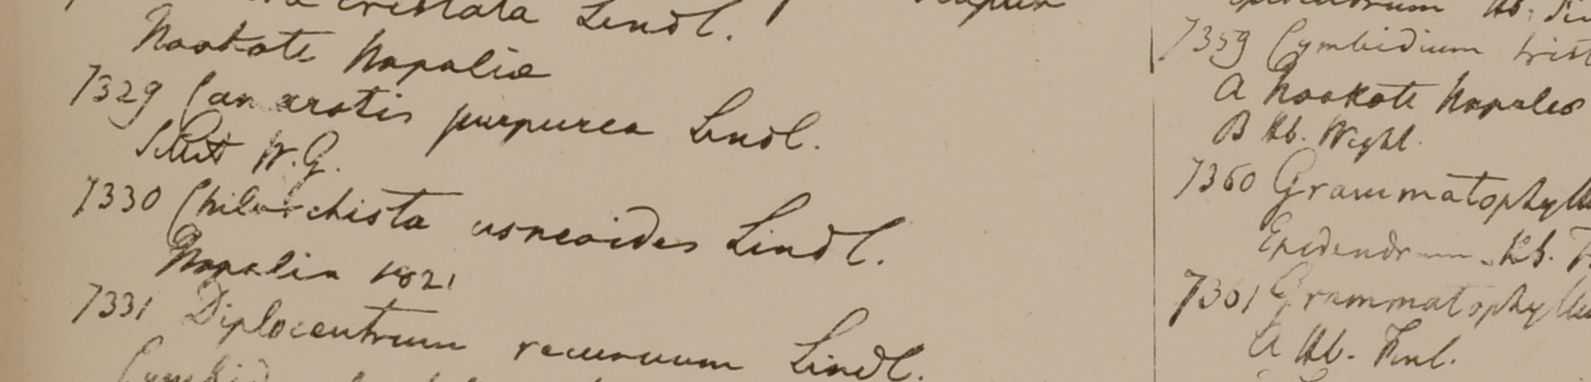 cristata Lindl.
Noakote Napalia
7329 Camarotis purpurea Lindl.
Sillet W.G.
7330 Chilorchista usneoides Lindl.
Napalia 1821
7331 Diplocentrum recurvum Lindl.
Epidendrum Hb.
7359 Cymbidium trist
A Noakote Napalia
B Hb. Wight.
7360 Grammatophyllu
Epidendrum Hb.
7361 Grammatophyllu
A Hb. Finl.